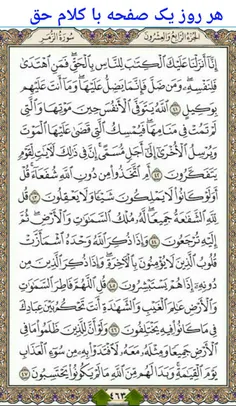 هر روز یک صفحه با کلام حق
الجزء الرابع والعشرون
سورة الزمر
إِنَّا أَنزَلْنَا عَلَيْكَ الْكِتَابَ لِلنَّاسِ بِالْحَقِّ فَمَنِ اهْتَدَىٰ
فَلِنَفْسِهِ وَمَن ضَلَّ فَإِنَّمَا يَضِلُّ عَلَيْهَا وَمَا أَنتَ عَلَيْهِم
بِوَكِيلٍ ﴿٤١﴾ اللَّهُ يَتَوَفَّى الْأَنفُسَ حِينَ مَوْتِهَا وَالَّتِي
لَمْ تَمُتْ فِي مَنَامِهَا فَيُمْسِكُ الَّتِي قَضَىٰ عَلَيْهَا الْمَوْتَ
وَيُرْسِلُ الْأُخْرَىٰ إِلَىٰ أَجَلٍ مُّسَمًّى إِنَّ فِي ذَٰلِكَ لَآيَاتٍ لِّقَوْمٍ
يَتَفَكَّرُونَ ﴿٤٢﴾ أَمِ اتَّخَذُوا مِن دُونِ اللَّهِ شُفَعَاءَ قُلْ
أَوَلَوْ كَانُوا لَا يَمْلِكُونَ شَيْئًا وَلَا يَعْقِلُونَ ﴿٤٣﴾ قُل
لِّلَّهِ الشَّفَاعَةُ جَمِيعًا لَّهُ مُلْكُ السَّمَاوَاتِ وَالْأَرْضِ ثُمَّ
إِلَيْهِ تُرْجَعُونَ ﴿٤٤﴾ وَإِذَا ذُكِرَ اللَّهُ وَحْدَهُ اشْمَأَزَّتْ
قُلُوبُ الَّذِينَ لَا يُؤْمِنُونَ بِالْآخِرَةِ وَإِذَا ذُكِرَ الَّذِينَ مِن
دُونِهِ إِذَا هُمْ يَسْتَبْشِرُونَ ﴿٤٥﴾ قُلِ اللَّهُمَّ فَاطِرَ السَّمَاوَاتِ
وَالْأَرْضِ عَالِمَ الْغَيْبِ وَالشَّهَادَةِ أَنتَ تَحْكُمُ بَيْنَ عِبَادِكَ
فِي مَا كَانُوا فِيهِ يَخْتَلِفُونَ ﴿٤٦﴾ وَلَوْ أَنَّ لِلَّذِينَ ظَلَمُوا مَا فِي
الْأَرْضِ جَمِيعًا وَمِثْلَهُ مَعَهُ لَافْتَدَوْا بِهِ مِن سُوءِ الْعَذَابِ
يَوْمَ الْقِيَامَةِ وَبَدَا لَهُم مِّنَ اللَّهِ مَا لَمْ يَكُونُوا يَحْتَسِبُونَ ﴿٤٧﴾
٤٦٣